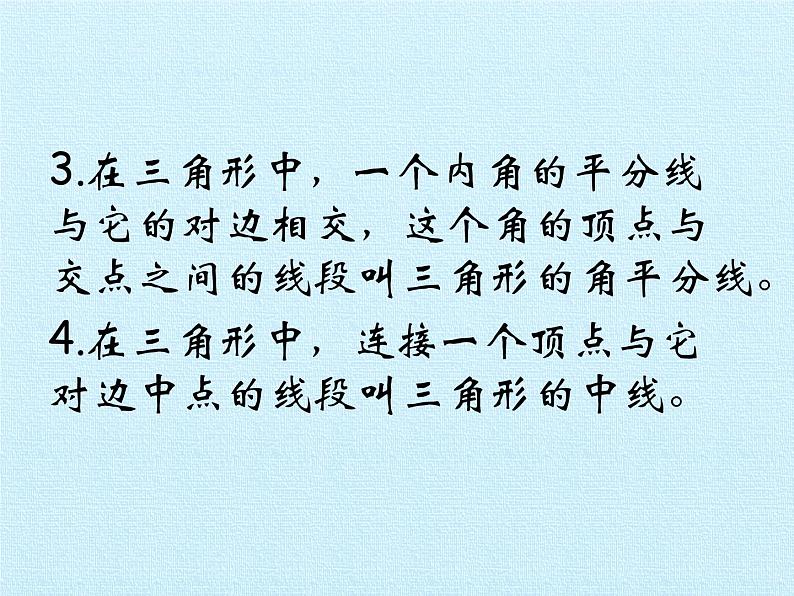 3.在三角形中，一个内角的平分线
与它的对边相交，这个角的顶点与
交点之间的线段叫三角形的角平分线。
4.在三角形中，连接一个顶点与它
对边中点的线段叫三角形的中线。